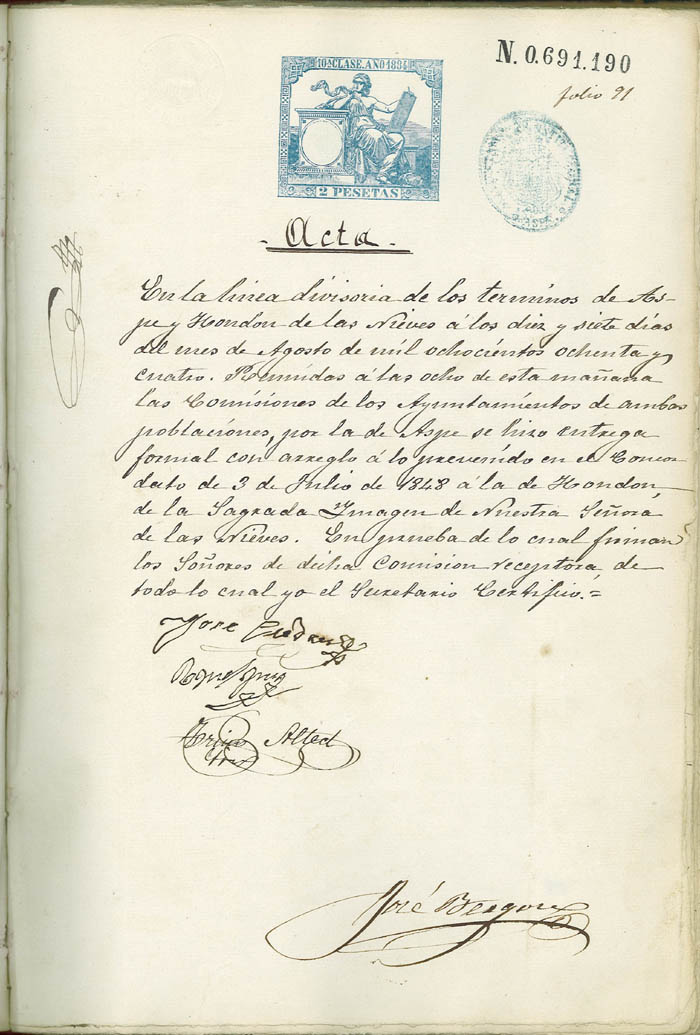 10ª CLASE. AÑO 1884
2 PESETAS
N. 0.691.190
folio 91
Acta
En la linea divisoria de los terminos de As-
pe y Hondon de las Nieves á los diez y siete dias
del mes de Agosto de mil ochocientos ochenta y
cuatro. Reunidas á las ocho de esta mañana
las Comisiones de los Ayuntamientos de ambas
poblaciones, por la de Aspe se hizo entrega
formal con arreglo á lo prevenido en el Concor-
dato de 3 de Julio de 1848 á la de Hondon,
de la Sagrada Ymagen de Nuestra Señora
de las Nieves. En prueba de lo cual firman
los Señores de dicha Comision receptora, de
todo lo cual yo el Secretario Certifico.=
Jose
Alted
José